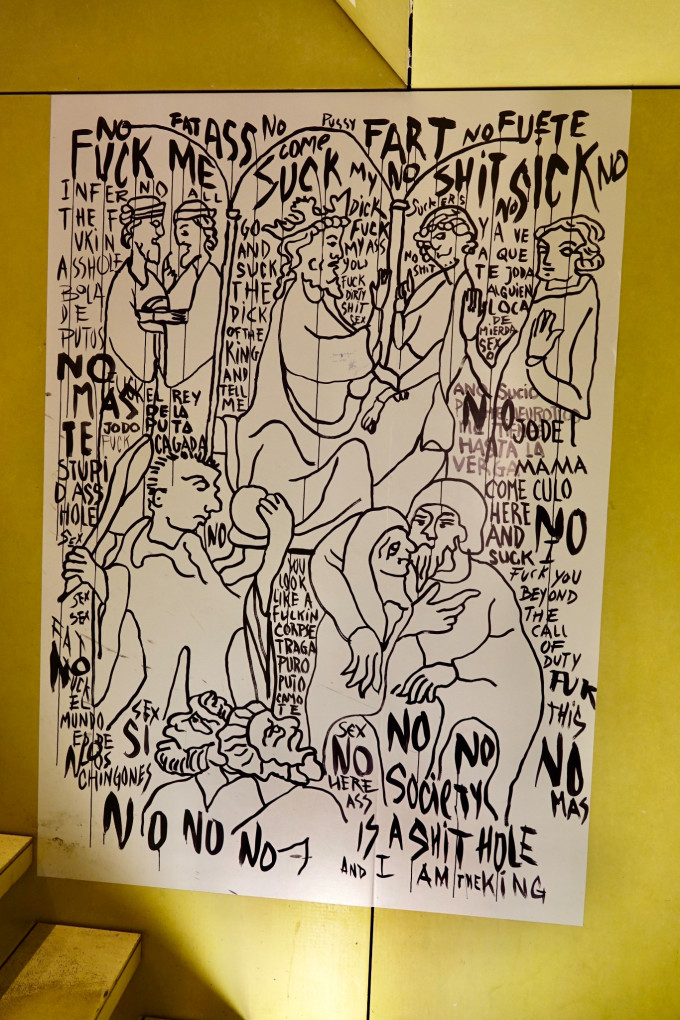 NO FAT ASS NO PUSSY FART NO FUETE
FUCK ME COME SUCK MY NO SHIT SICK NO
INFERNO ALL
THE
ASSHOLE
BOLA
DE
PUTOS
GO
AND
SUCK
THE
DICK
OF THE
KING
AND
TELL
ME
DICK
FUCK
MY ASS
YOU
FUCK
DIRTY
SHIT
SEX
SUCKERS
NO
SHIT
NO
YA VE
A QUE
TE JODA
ALGUIEN
LOCA
DE
MIERDA
SEX
NO
MAS
TE
STUPI
D ASS
HOLE
SEX
FUCK
JODO
FUCK
EL REY
DE LA
PUTA
CAGADA
NO
ANO SUCIO
NO
HASTA LA
VERGA
JODE
MAMA
CULO
COME
HERE
AND
SUCK
NO
I
FUCK YOU
BEYOND
THE
CALL
OF
DUTY
FUK
THIS
NO
MAS
SEX
SEX
FAT
NO
FUCK
EL
MUNDO
ES DE
NO LOS
CHINGONES
SEX
SI
YOU
LOOK
LIKE A
FULKIN
CORPSE
TRAGA
PURO
PUTO
CAMO
TE
SEX
NO
HERE
ASS
NO NO
SOCIETY
IS A SHIT HOLE
AND I AM THE KING
NO NO NO